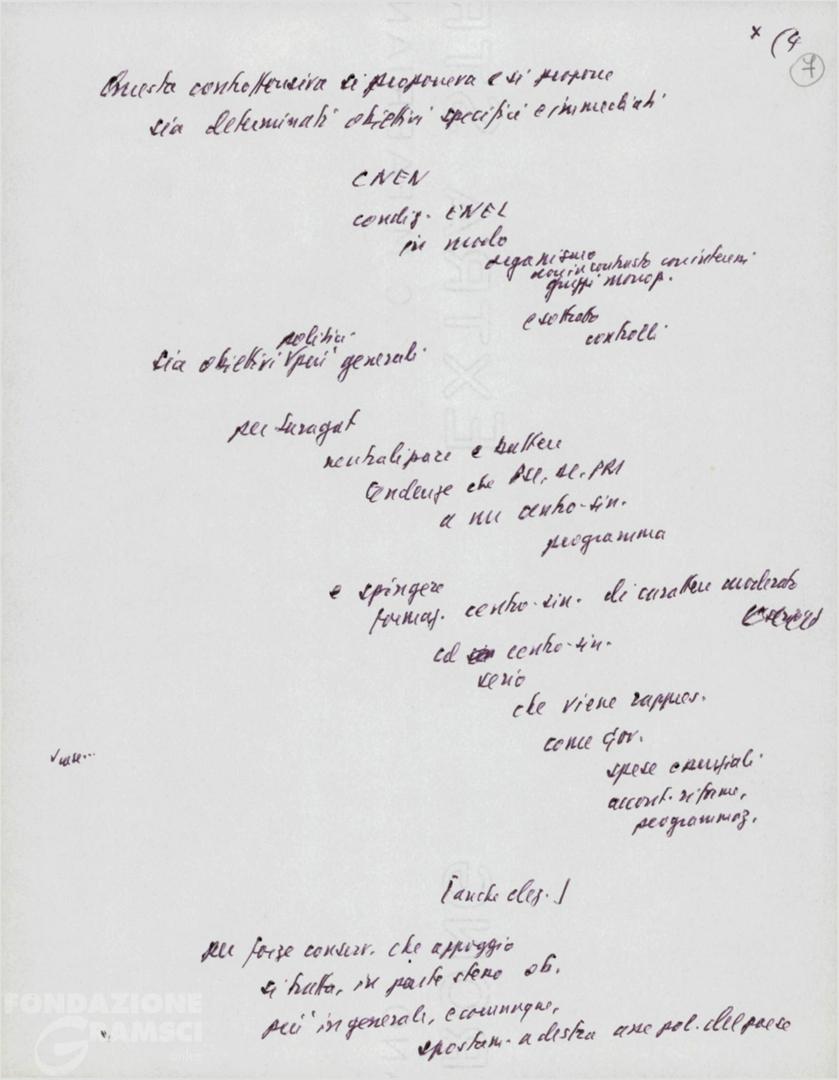 x (4
7
Questa controffensiva si proponeva e si propone
sia determinati obiettivi specifici e immediati
CNEN
condiz. ENEL
in modo
organismo
non in contrasto con interessi
gruppi monop.
e sottratto
controlli
politici
sia obiettivi √ più generali
per Saragat
neutralizzare e battere
tendenze che PSI, DC, PRI
a un centro-sin.
programma
e spingere
formaz. centro-sin. di carattere moderato
ad centro-sin.
serio
che viene rappres.
come Gov.
spese
accant. riforme,
programmaz.
[anche elez.]
per forze conserv. che appoggio
si tratta, in parte stesso ob.
più in generale, e comunque,
spostam. a destra asse pol. del paese
FONDAZIONE
GRAMSCI